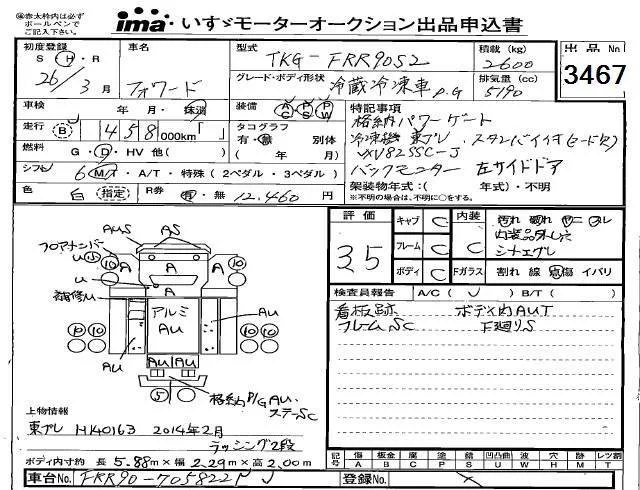 ㊟赤太枠内は必ず
ボールペンで
ご記入下さい。
ima いすゞモーターオークション出品申込書
初度登録
S Ⓗ・R
26/3月
車名
フォワード
型式
TKG-FRR90S2
積載 (kg)
2600
出品No
3467
グレード・ボディ形状
冷蔵冷凍車 P.G
排気量 (cc)
5190
車検
年 月・抹消
装備
AC PS PW
特記事項
格納パワーゲート
走行 Ⓑ 458,000km「 」
タコグラフ
有・無 別体
( 年 月)
冷凍機 東プレ スタンバイ付(コード欠)
XV82SSC-J
燃料
G・Ⓓ・HV 他( )
バックモニター 左サイドドア
シフト
6 M/T・A/T・特殊 (2ペダル・3ペダル)
架装物年式:( 年式)・不明
※不明の場合は、不明に○をする。
色
白 指定
R券
有・無 12,460 円
評価
3.5
キャブ C
フレーム C
ボディ C
内装 C
汚れ 破れ ヤニ スレ
内装品外し穴
シートエグレ
Fガラス
割れ 線 点傷 イバリ
検査員報告
A/C ( レ ) B/T ( )
看板跡 ボデメ内AUT
フレームSC F廻りS
AUS
AS
フロアナンバー
U
10
10
A
A
A
A
U
補修U
アルミ
AU
AU
AU
10
10
10
10
AU
AU
5
格納P/G AU.
ステーSC
上物情報
東プレ HK40163 2014年2月
ラッシング2段
ボディ内寸約 長 5.88m×幅 2.29m×高 2.00m
傷 板金 腐 塗 錆 凹凸曲 波 穴 跡 レツ割
A B C P S U W H M T
車台No. FRR90-7058221
登録No.